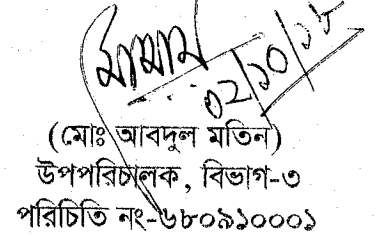 (মোঃ আবদুল মতিন)
উপপরিচালক, বিভাগ-৩
পরিচিতি নং-৬৮০৯১০০০১